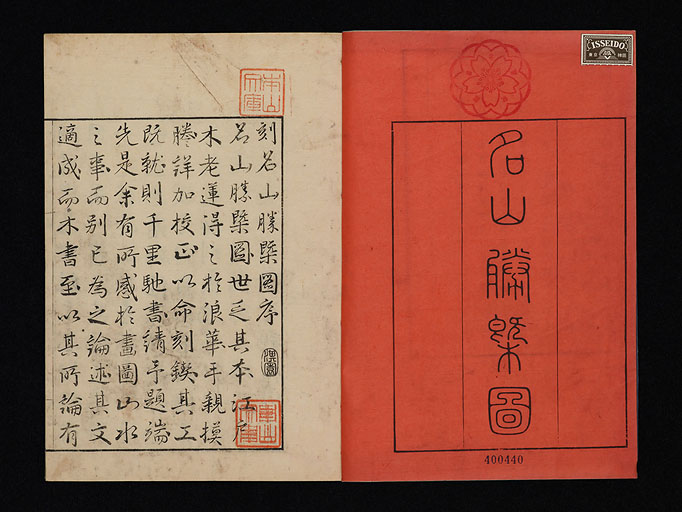 ISSEIDO
名山勝槩圖
400440
刻名山勝槩圖序
名山勝槩圖世乏其本江府
木老蓮得之於浪華手親摸
謄詳加校正以命刻鍥其工
既就則千里馳書請予題端
先是余有所感於畫圖山水
之事而別已為之論述其文
適成而木書至以其所論有